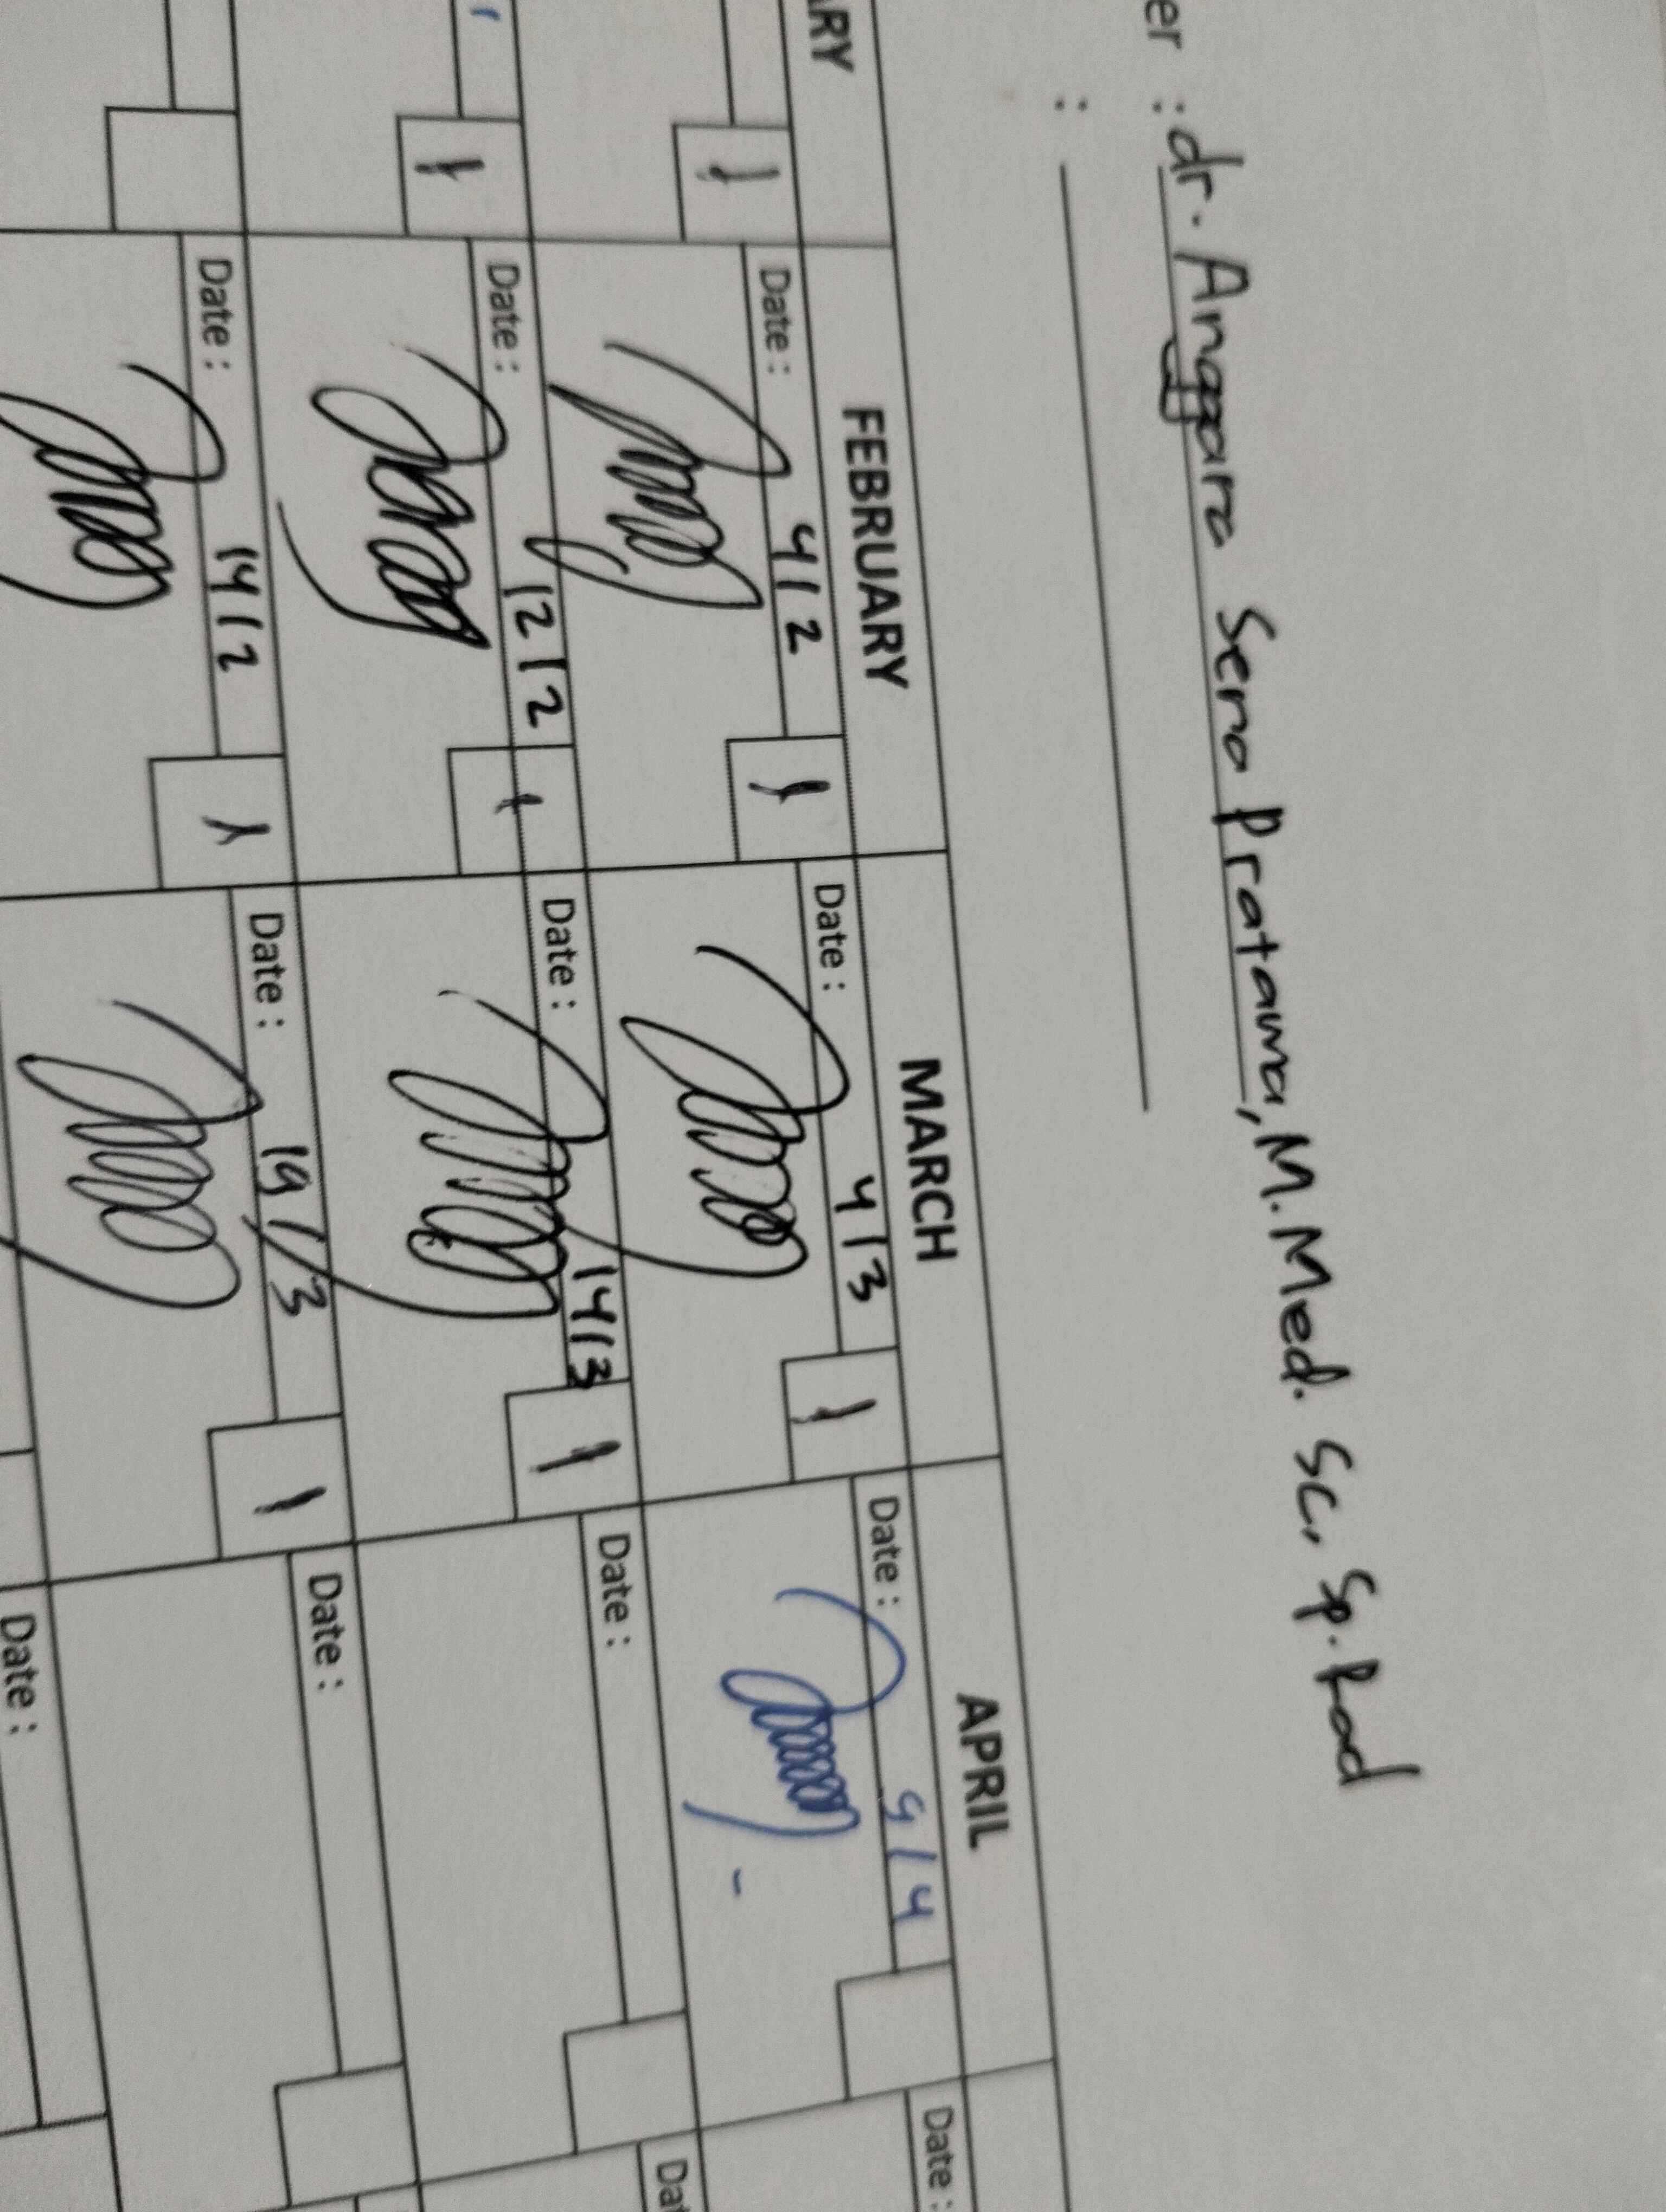 er : dr. Anggara Seno Pratama, M.Med. Sc, Sp.Rad
:
ARY FEBRUARY MARCH APRIL
1 Date : 4/2 1 Date : 4/3 1 Date : 9/4 Date :
1 Date : 12/2 1 Date : 14/3 1 Date : Dat
Date : 14/2 1 Date : 19/3 1 Date :
Date :